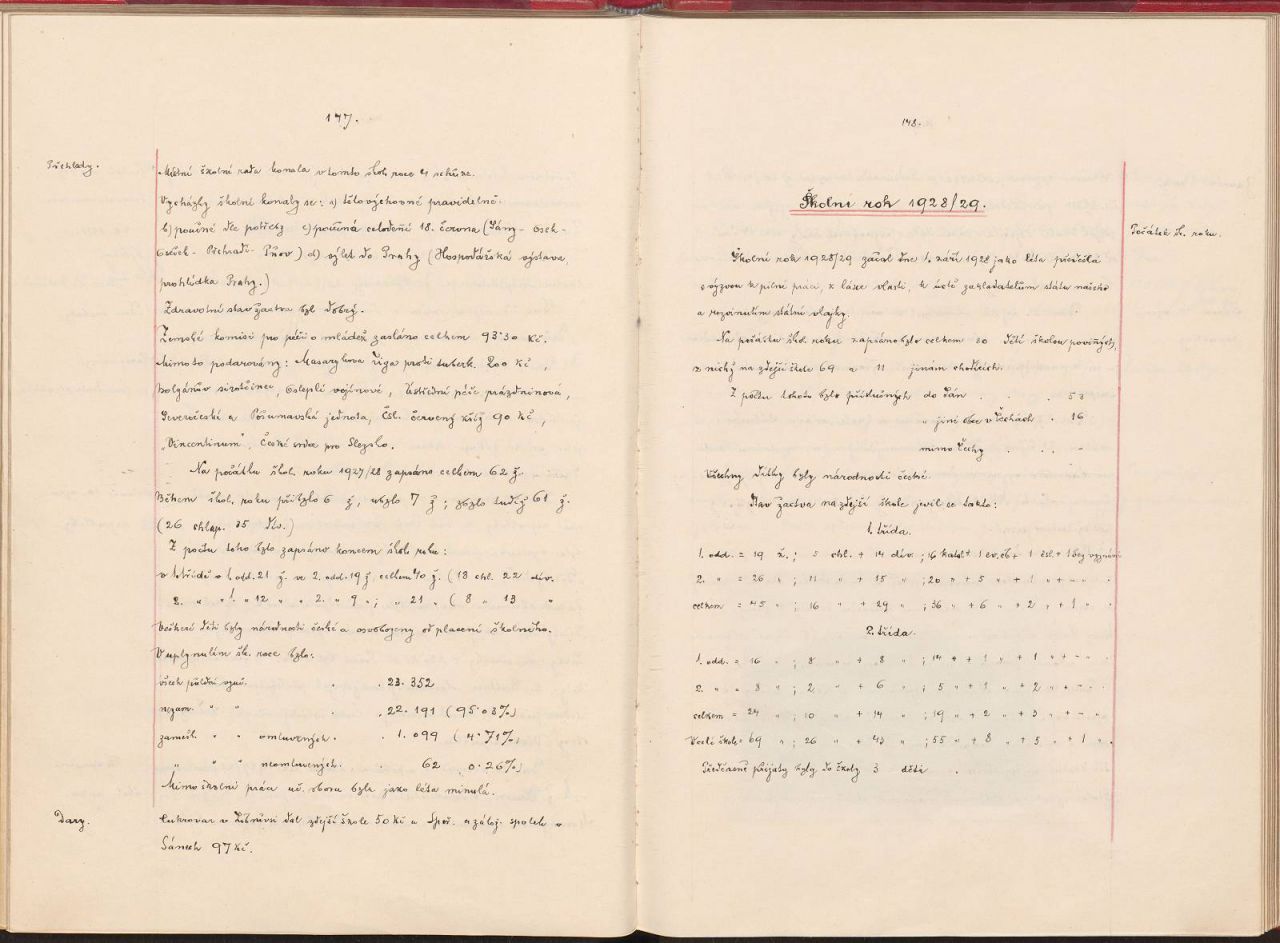 147.
Přehledy.
Místní školní rada konala v tomto škol. roce 4 schůze.
Vycházky školní konaly se: a) tělovýchovné pravidelně.
b) poučné dle potřeby c) poučná celodenní 18. června (Sány - Osek -
Oseček - Přehradí - Pňov) d) výlet do Prahy (Hospodářská výstava,
prohlídka Prahy.)
Zdravotní stav žactva byl dobrý.
Zemské komisi pro péči o mládež zasláno celkem 93·30 Kč.
Mimoto podarovány: Masarykova liga proti tuberk. 200 Kč,
sirotčinec, Osleplí vojínové, Ústřední péče prázdninová,
Severočeská a Pošumavská jednota, Čsl. červený kříž 90 Kč,
„Vincentinum", České srdce pro Slezsko.
Na počátku škol. roku 1927/28 zapsáno celkem 62 ž.
Během škol. roku přibylo 6 ž, ubylo 7 ž; zbylo tudíž 61 ž.
(26 chlap. 35 dív.)
Z počtu toho bylo zapsáno koncem škol. roku:
v 1. třídě v 1. odd. 21 ž. ve 2. odd. 19 ž, celkem 40 ž. (18 chl. 22 dív.
2. " " 1. " 12 " " 2. " 9 "; " 21 " (8 " 13 "
Veškeré děti byly národnosti české a osvobozeny od placení školného.
V uplynulém šk. roce bylo:
všech půldní vyuč. . . 23.352
nezam. " " . . 22.191 (95·03%)
zamešk. " " omluvených. . 1.099 (4·71%)
" " " neomluvených. . 62 0·26%)
Mimoškolní práce uč. sboru byla jako léta minulá.
Dary.
Cukrovar v Libněvsi dal zdejší škole 50 Kč a Spoř. a zálož. spolek v
Sánech 97 Kč.
148.
Školní rok 1928/29.
Počátek šk. roku.
Školní rok 1928/29 začal dne 1. září 1928 jako léta předešlá
s výzvou k pilné práci, k lásce vlasti, k úctě zakladatelům státu našeho
a rozvinutím státní vlajky.
Na počátku škol. roku zapsáno bylo celkem 80 dětí školou povinných,
z nichž na zdejší škole 69 a 11 jinam chodících.
Z počtu tohoto bylo příslušných do Sán . . . . 53
" jiné obce v Čechách . 16
mimo Čechy . . . -
Všechny dítky byly národnosti české.
Stav žactva na zdejší škole jevil se takto:
1. třída.
1. odd. = 19 ž.; 5 chl. + 14 dív. ; 16 katol. + 1 ev. čb + 1 čsl. + 1 bez vyznání
2. " = 26 " ; 11 " + 15 " ; 20 " + 5 " + 1 " + - " .
celkem = 45 " ; 16 " + 29 " ; 36 " + 6 " + 2 " + 1 " .
2. třída.
1. odd. = 16 " ; 8 " + 8 " ; 14 " + 1 " + 1 " + - " .
2. " = 8 " ; 2 " + 6 " ; 5 " + 1 " + 2 " + - " .
celkem = 24 " ; 10 " + 14 " ; 19 " + 2 " + 3 " + - " .
V celé škole = 69 " ; 26 " + 43 " ; 55 " + 8 " + 5 " + 1 " .
Předčasně přijaty byly do školy 3 děti .